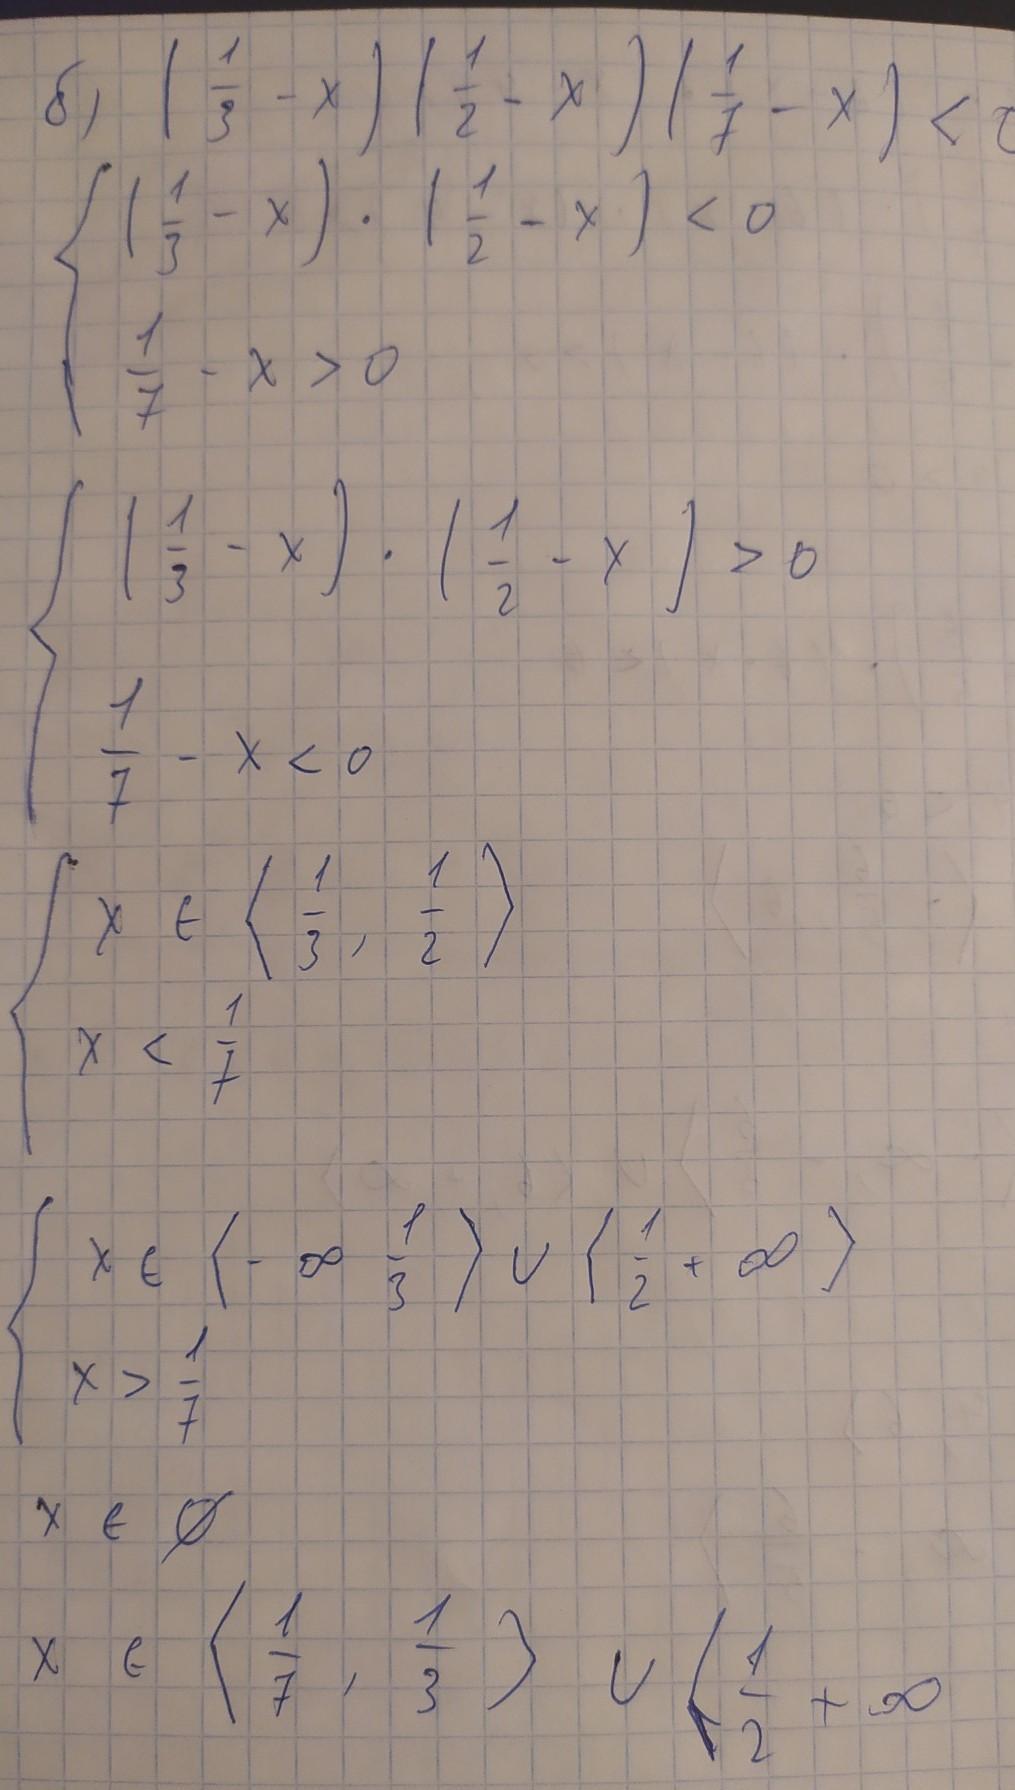 б) (1/3 - x)(1/2 - x)(1/7 - x) < 0
(1/3 - x) · (1/2 - x) < 0
1/7 - x > 0
(1/3 - x) · (1/2 - x) > 0
1/7 - x < 0
x ∈ ⟨1/3, 1/2⟩
x < 1/7
x ∈ ⟨-∞ 1/3⟩ ∪ ⟨1/2 + ∞⟩
x > 1/7
x ∈ ∅
x ∈ ⟨1/7, 1/3⟩ ∪ ⟨1/2 + ∞